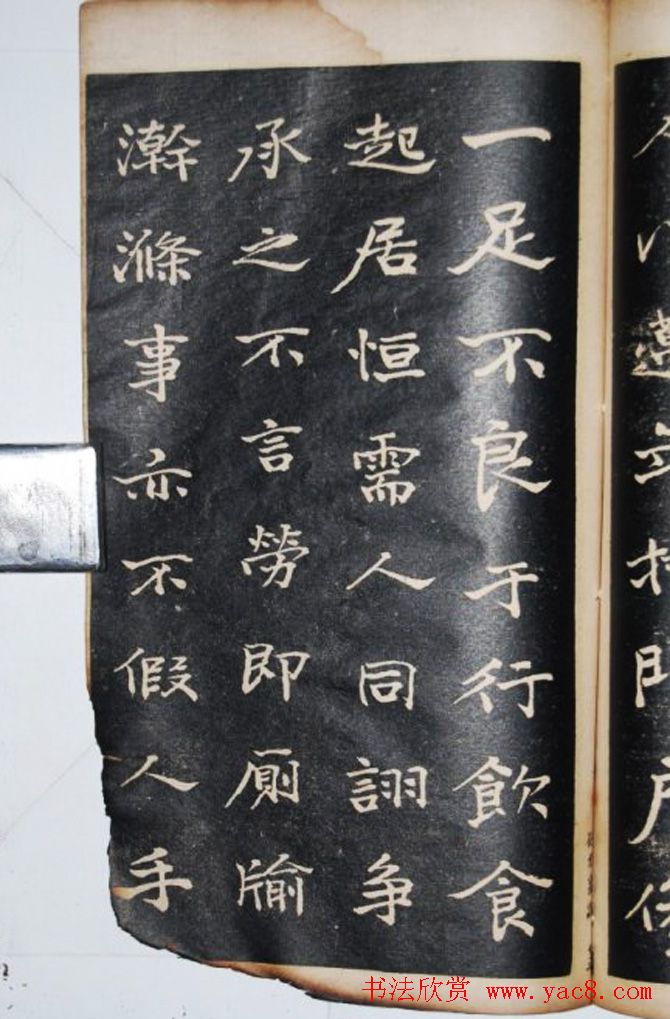 門戶
一足不良于行飲食
起居恒需人同詡争
承之不言勞即廁牏
澣滌事亦不假人手
书法欣赏 www.yac8.com